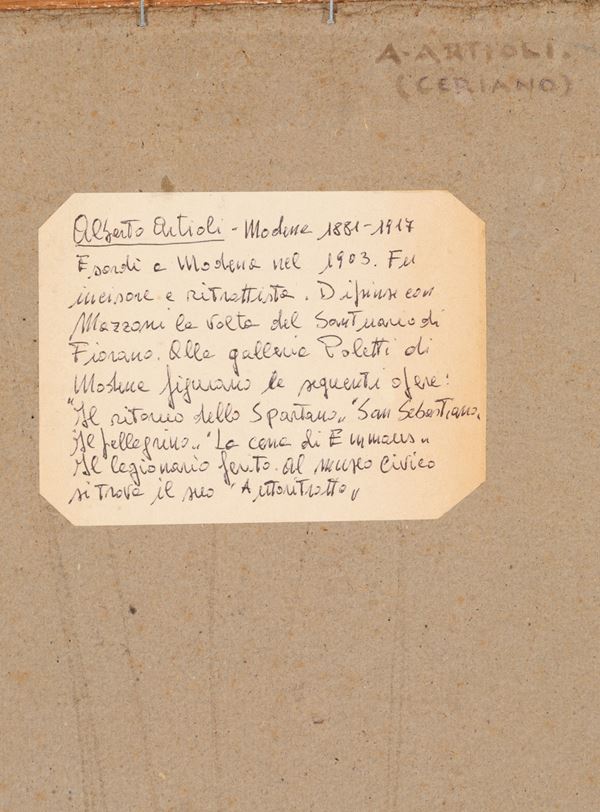 A. ARTIOLI.
(CERIANO)
Alberto Artioli - Modena 1881-1917
Esordì a Modena nel 1903. Fu
incisore e ritrattista. Dipinse con
Mazzoni la volta del Santuario di
Fiorano. Alla galleria Poletti di
Modena figurano le seguenti opere:
"Il ritorno dello Spartano„ "San Sebastiano„
Il pellegrino„ "La cena di Emmaus„
Il legionario ferito. Al museo Civico
si trova il suo "Autoritratto„